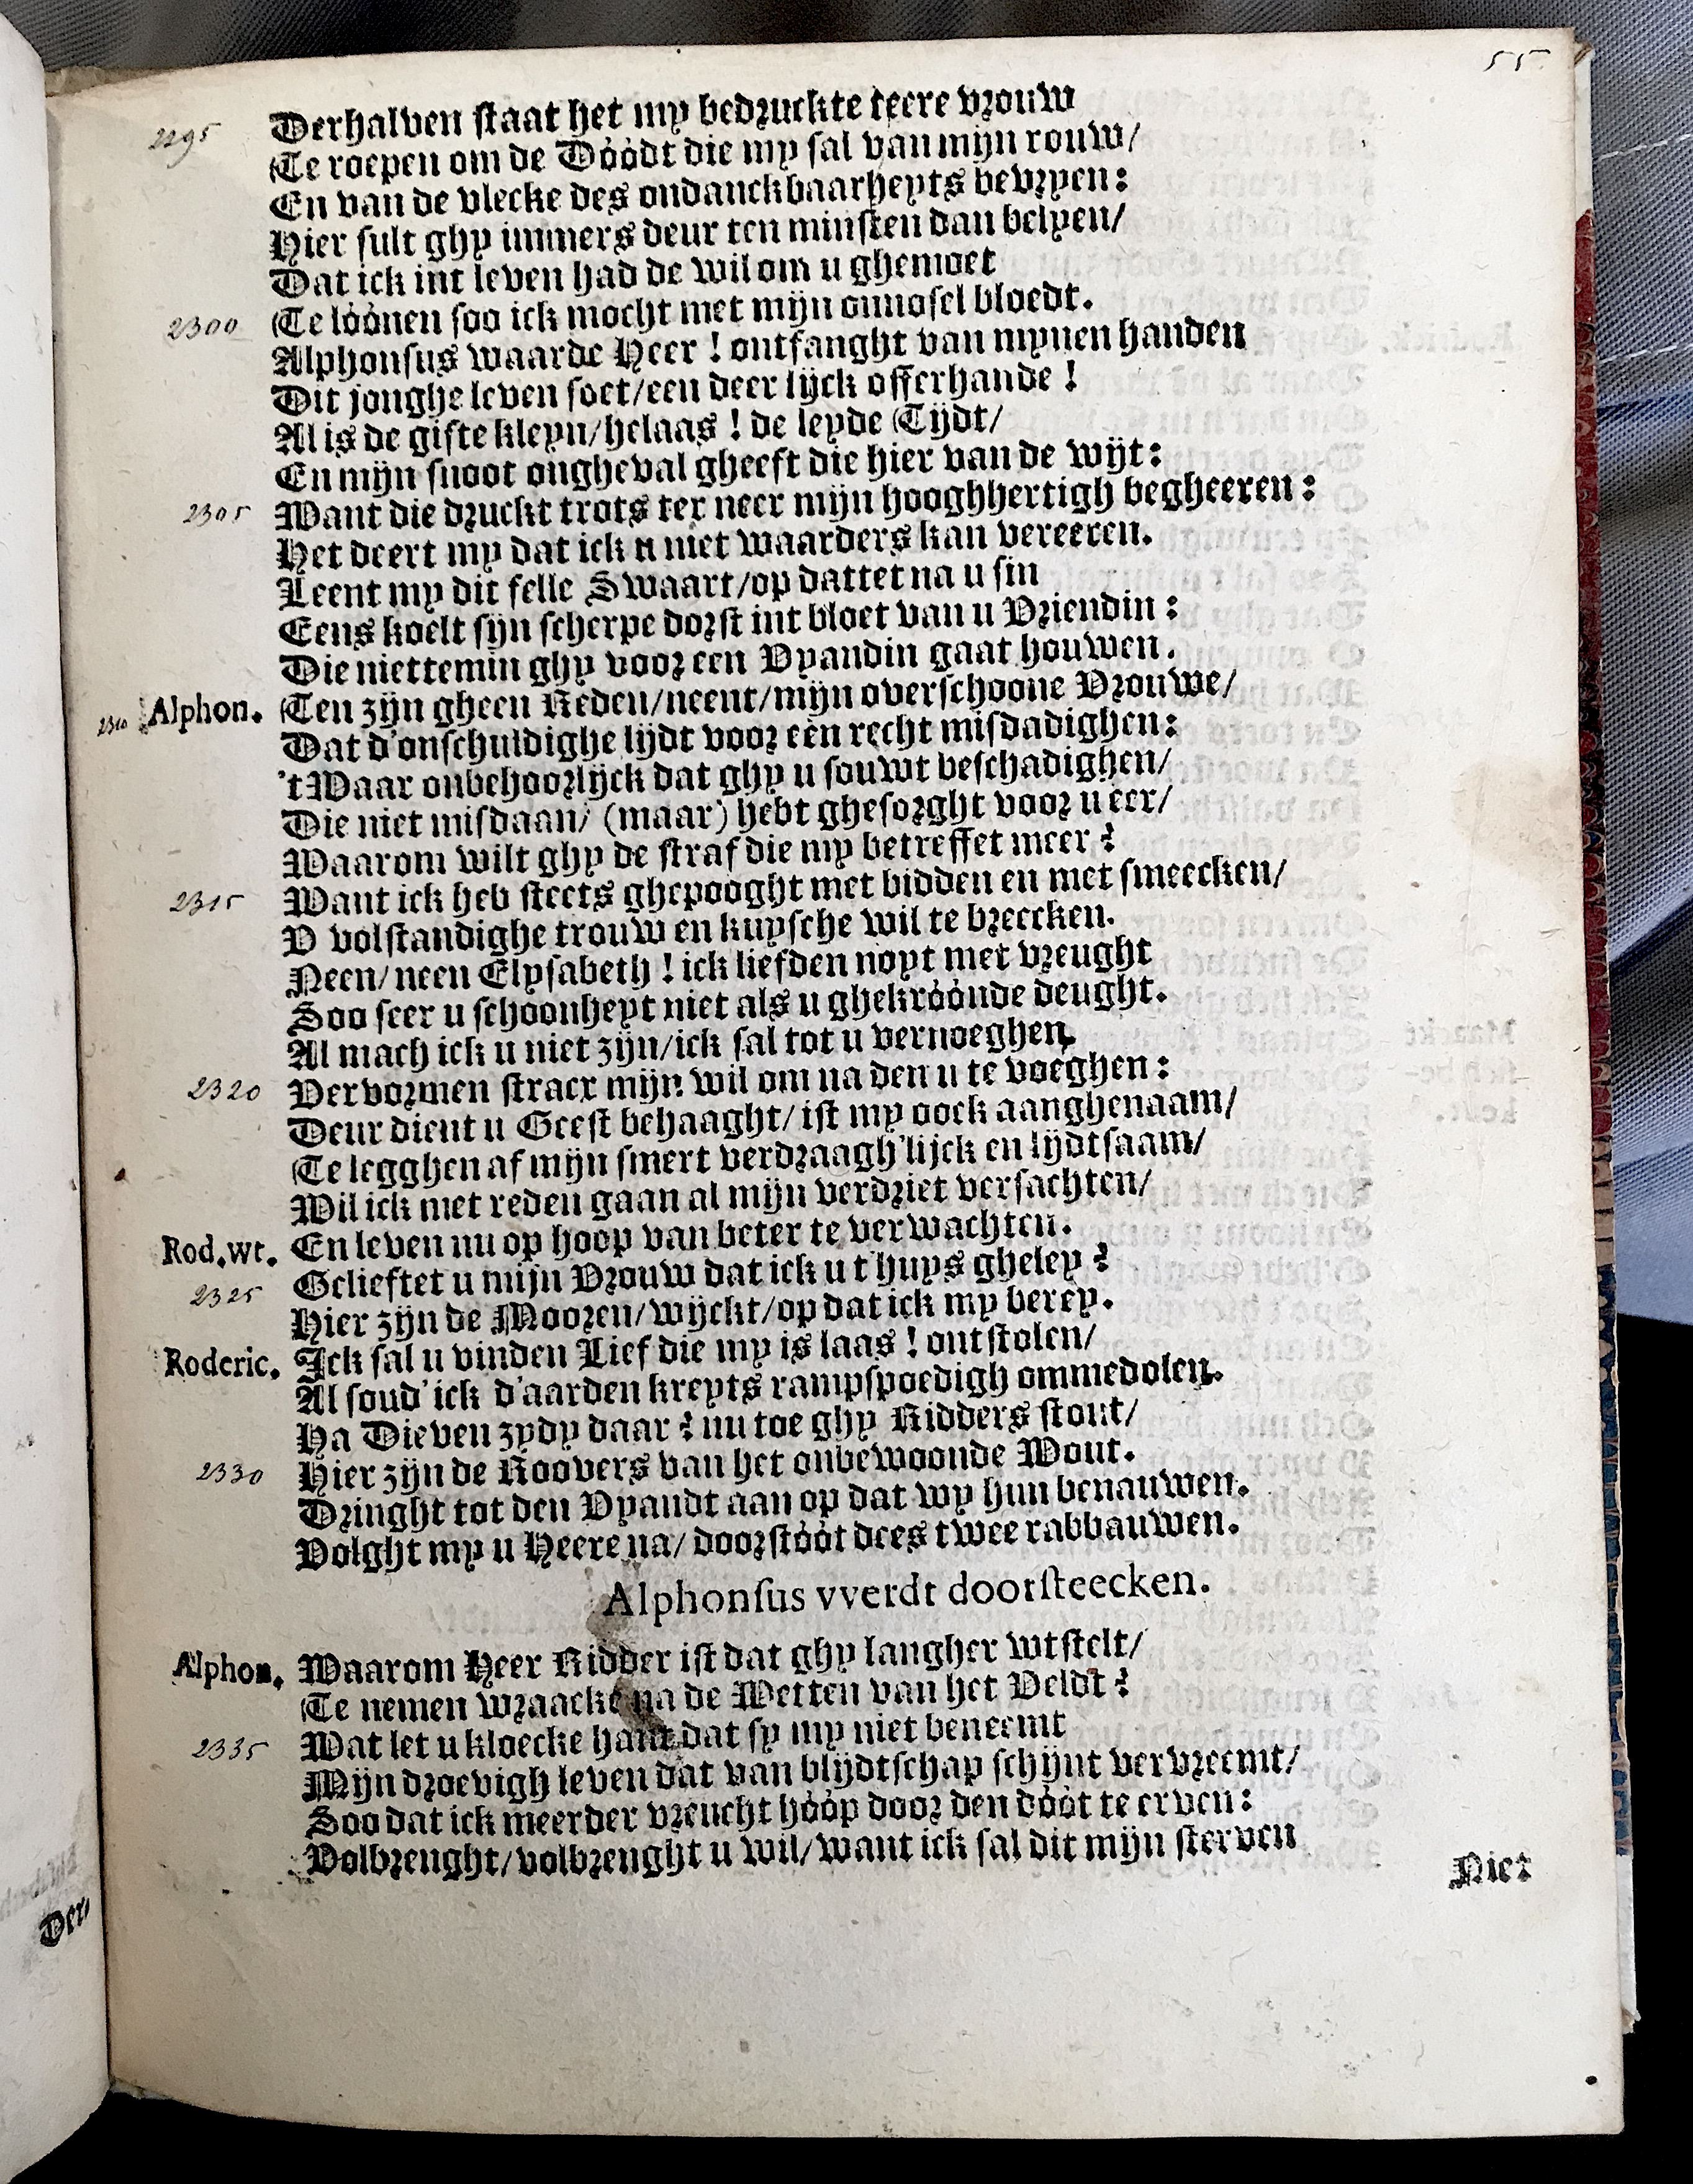 55
2295 Derhalven staat het my bedruckte teere vrouw
Te roepen om de Dóódt die my sal van mijn rouw/
En van de vlecke des ondanckbaarheyts bevryen:
Hier sult ghy immers deur ten minsten dan belyen/
Dat ick int leven had de wil om u ghemoet
2300 Te lóónen soo ick mocht met mijn onnosel bloedt.
Alphonsus waarde Heer! ontfanght van mynen handen
Dit jonghe leven soet/een deerlijck offerhande!
Al is de gifte kleyn/helaas! de leyde Tijdt/
En mijn snoot ongheval gheeft die hier van de wijt:
2305 Want die druckt trots ter neer mijn hooghhertigh begheeren:
Het deert my dat ick u niet waarders kan vereeren.
Leent my dit felle Swaart/op dattet na u sin
Eens koelt sijn scherpe dorst int bloet van u Vriendin:
Die niettemin ghy voor een Vyandin gaat houwen.
2310 Alphon. Ten zijn gheen Reden/neent/mijn overschoone Vrouwe/
Dat d'onschuldighe lijdt voor een recht misdadighen:
't Waar onbehoorlijck dat ghy u souwt beschadighen/
Die niet misdaan/ (maar) hebt ghesorght voor u eer/
Waarom wilt ghy de straf die my betreffet meer?
2315 Want ick heb steets ghepooght met bidden en met smeecken/
V volstandighe trouw en kuysche wil te breecken.
Neen/neen Elysabeth! ick liefden noyt met vreught
Soo seer u schoonheyt niet als u ghekróónde deught.
Al mach ick u niet zijn/ick sal tot u vernoeghen,
2320 Vervormen stracx mijn wil om na den u te voeghen:
Deur dient u Geest behaaght/ist my oock aanghenaam/
Te legghen af mijn smert verdraagh'lijck en lijdtsaam/
Wil ick met reden gaan al mijn verdriet versachten/
Rod.wt. En leven nu op hoop van beter te verwachten.
2325 Gelieftet u mijn Vrouw dat ick u t'huys gheley?
Hier zijn de Mooren/wijckt/op dat ick my berey.
Roderic. Ick sal u vinden Lief die my is laas! ontstolen/
Al soud' ick d'aarden kreyts rampspoedigh ommedolen.
Ha Dieven zydy daar? nu toe ghy Ridders stout/
2330 Hier zijn de Roovers van het onbewoonde Wout.
Dringht tot den Vyandt aan op dat wy hun benauwen.
Volght my u Heere na/ doorstóót dees twee rabbauwen.
Alphonsus vverdt doorsteecken.
Alphon. Waarom Heer Ridder ist dat ghy langher wtstelt/
Te nemen wraacke na de Wetten van het Veldt?
2335 Wat let u kloecke hant dat sy my niet beneemt
Mijn droevigh leven dat van blijdtschap schijnt vervreemt/
Soo dat ick meerder vreucht hóóp door den dóót te erven:
Volbrenght/volbrenght u wil/want ick sal dit mijn sterven
Niet
Der,